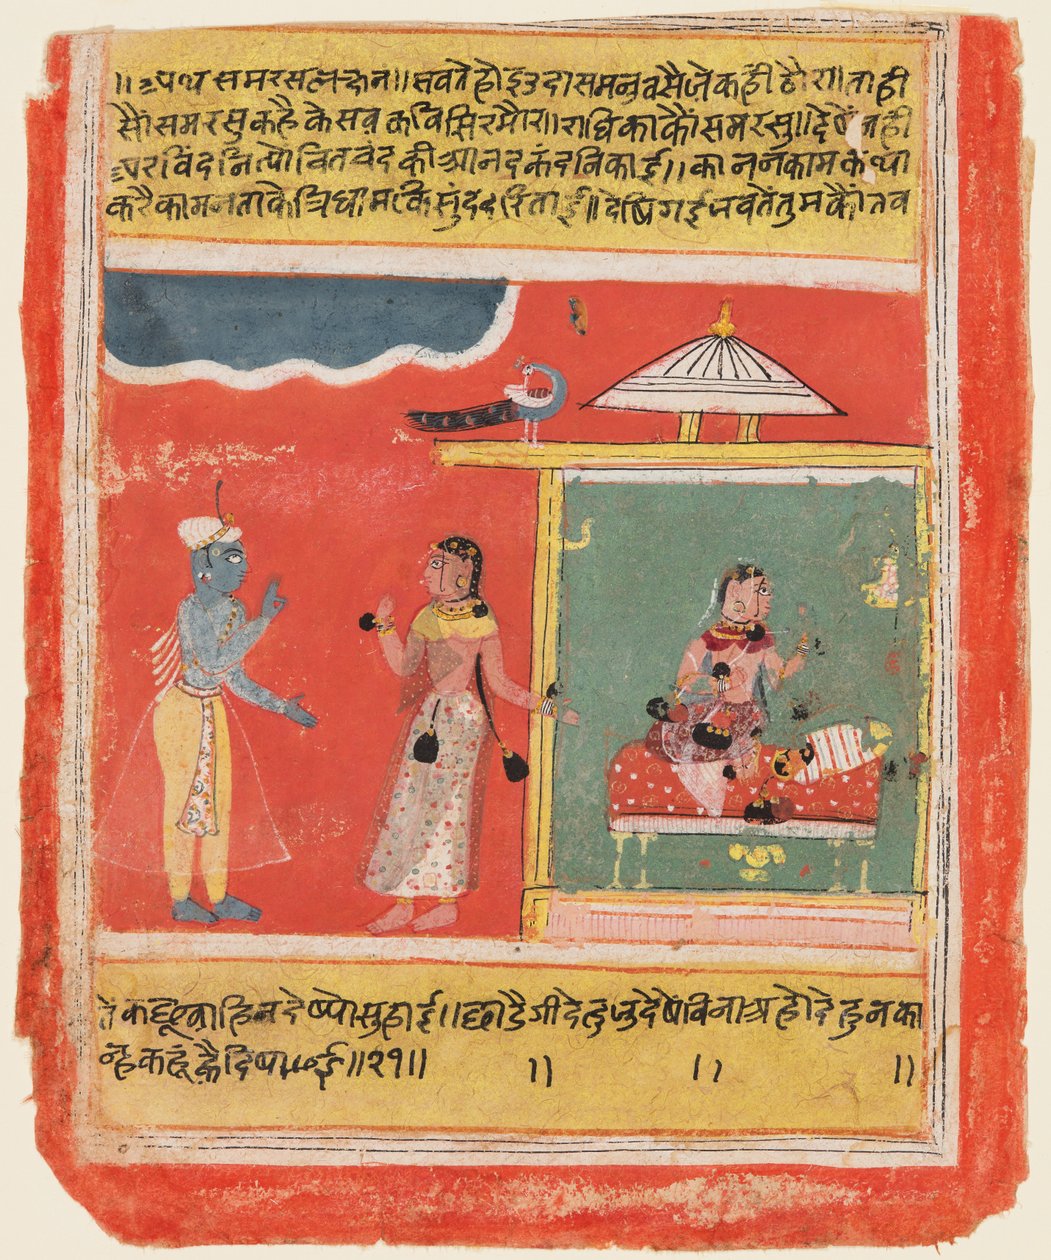 ॥अथ समरसलछन॥सवते होइ उदास मनु वसै जे कही ठौर॥ताही
सौं समरसु कहै केसव कवि सिरमौर॥राधिका कौ समरसु॥देषै जही
अरविंद नि त्यो चित चंद की आनदकंद निकाई॥कानन काम कथा
करै कामन ताकै त्रिधाम कि सुंदरिताई॥देषि गई जवते तुमकौं तव
ते कछू वाहि न देष्यो सुहाई॥छाडैगी देह जु देषै विना अहो देहु न का
न्ह कहूं कै दिषाई॥२१॥ ॥ ॥ ॥